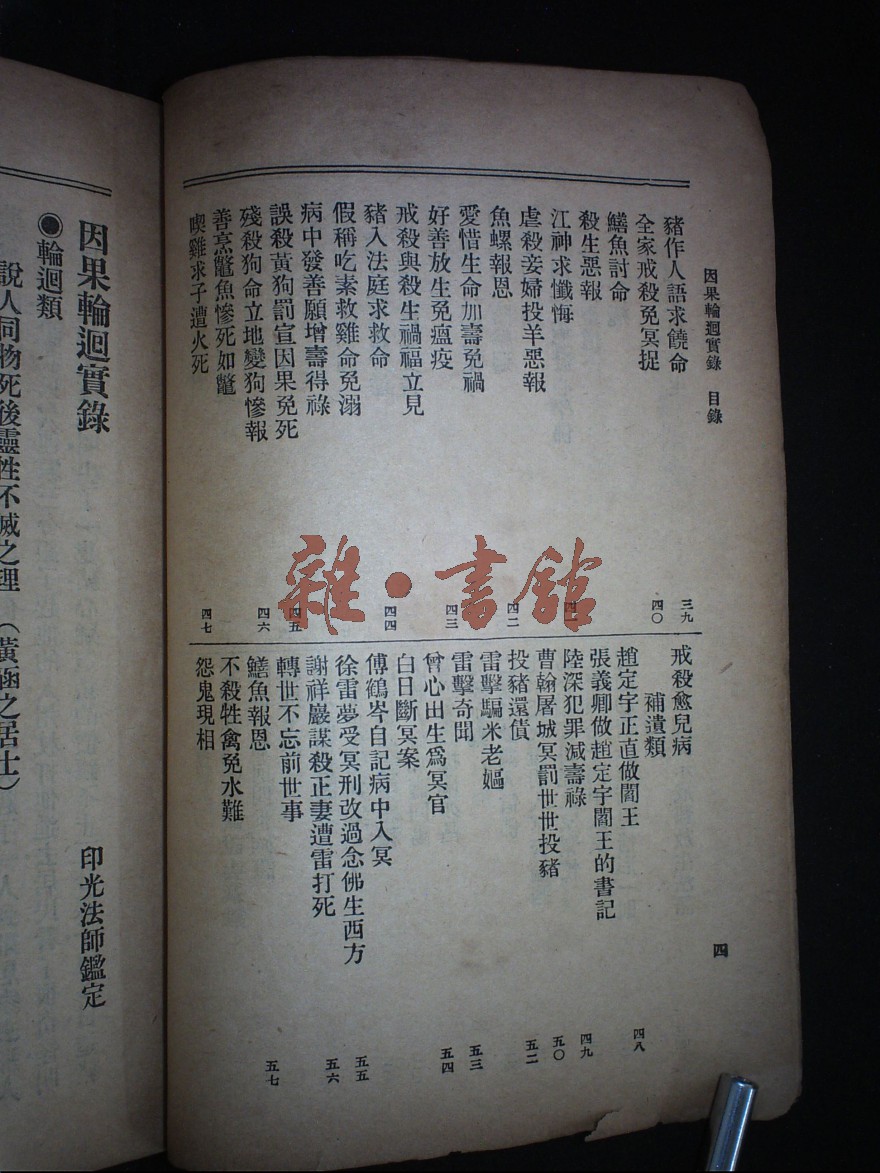 因果輪迴實錄 目錄
四
豬作人語求饒命
三九
全家戒殺免冥捉
四〇
鱔魚討命
殺生惡報
江神求懺悔
虐殺妾婦投羊惡報
魚螺報恩
四二
愛惜生命加壽免禍
好善放生免瘟疫
四三
戒殺與殺生禍福立見
豬入法庭求救命
四四
假稱吃素救雞命免溺
病中發善願增壽得祿
誤殺黃狗罰宣因果免死
四五
殘殺狗命立地變狗慘報
四六
善烹鼈魚慘死如鼈
喫雞求子遭火死
四七
戒殺愈兒病
補遺類
趙定宇正直做閻王
四八
張義卿做趙定宇閻王的書記
陸深犯罪減壽祿
四九
曹翰屠城冥罰世世投豬
五〇
投豬還債
五二
雷擊騙米老嫗
雷擊奇聞
五三
曾心出生爲冥官
五四
白日斷冥案
傅鶴岑自記病中入冥
徐雷夢受冥刑改過念佛生西方
五五
謝祥巖謀殺正妻遭雷打死
五六
轉世不忘前世事
鱔魚報恩
五七
不殺牲禽免水難
怨鬼現相
因果輪迴實錄
印光法師鑑定
●輪迴類
說人同物死後靈性不滅之理（黃涵之居士）
雜·書館